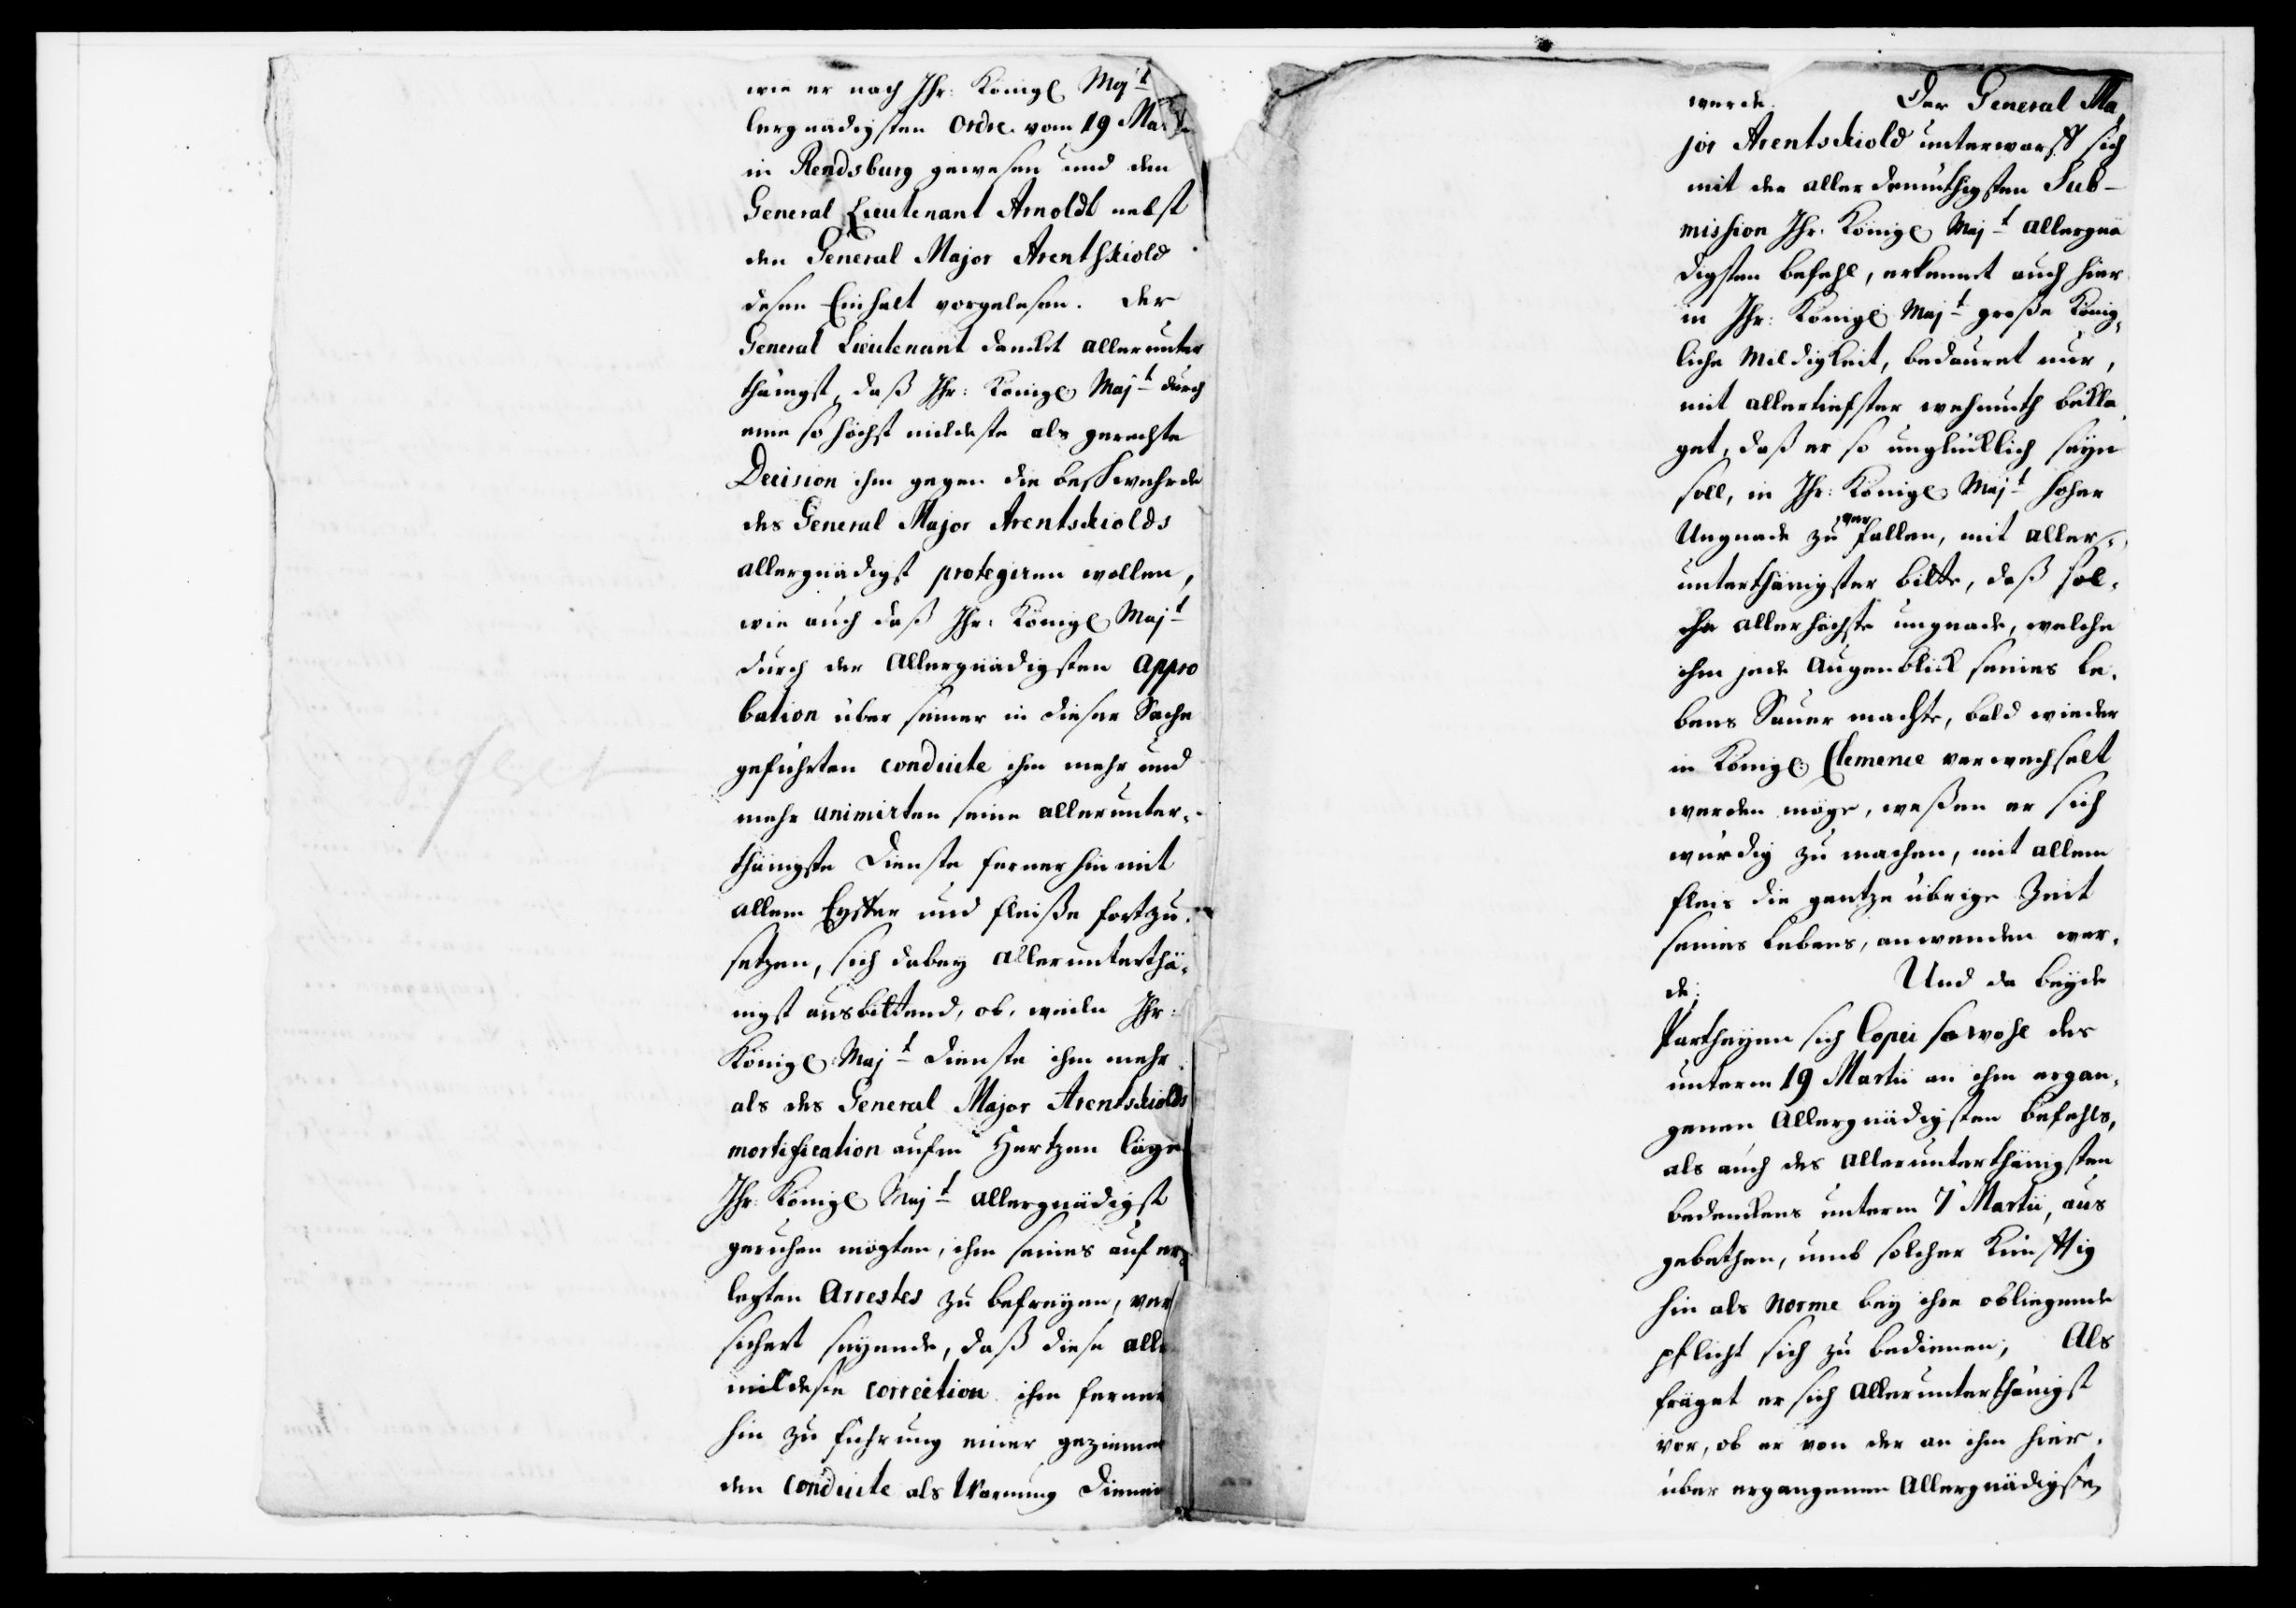 wie er nach Ihr: Königl Majt
lergnädigsten Ordre vom 19 Martii
in Rendsburg gewesen und den
General Lieutenant Arnoldt nebst
den General Major Arentskiold
desen Einhalt vorgelesen. Der
General Lieutenant danckt allerunter
thänigst, daß Ihr: Königl Majt durch
eine so höchst mildeste als gerechte
Decision ihm gegen die beschwehrde
des General Major Arentschiolds
allergnädigst protegiren wollen,
wie auch daß Ihr: Königl Majt
durch der Allergnädigsten Appro
bation über seiner in dieser Sache
geführten conduite ihm mehr und
mehr animirten seine allerunter-
thänigste Dienste fernerhin mit
allem Eyffer und fleiße fortzu-
setzen, sich dabey allerunterthä-
nigst ausbittend, ob, weilen Ihr:
Königl: Majt Dienste ihm mehr
als des General Major Arentschiolds
mortification aufm Hertzen läge
Ihr: Königl Majt allergnädigst
geruhen mögten, ihm seines aufer-
legten Arrestes zu befreyen, ver
sichert seyende, daß diese alle
mildeste correction ihm ferner
hin zu führung einer geziemen
den conduite als Warnung dienen
werde. Der General Ma
jor Arentschiold unterwarff sich
mit der allerdemüthigsten Sub-
mission Ihr: Königl Majt allergnä
digsten befehl, erkennet auch hier
in Ihr: Königl Majt große König-
liche Mildigkeit, bedauret nur,
mit allertiefster wehmuth bekla
get, daß er so unglücklich seyn
soll, in Ihr: Königl Majt hoher
Ungnade zu verfallen, mit aller-
unterthänigster bitte, daß sol-
che allerhöchste ungnade, welche
ihm jede Augenblick seines Le-
bens Sauer machte, bald wieder
in Königl: Clemence verwechselt
werden möge, weßen er sich
würdig zu machen, mit allem
fleis die gantze übrige Zeit
seines Lebens, anwenden wer-
de; Und da beyde
Partheyen sich Copei so wohl des
unterm 19 Martii an ihm ergan-
genen Allergnädigsten befehls,
als auch des allerunterthänigsten
bedenckens unterm 7 Martii, aus
gebethen, umb solcher Künfftig
hin als Norme bey ihre obliegende
pflicht sich zu bedienen; Als
fräget er sich allerunterthänigst
vor, ob er von der an ihm hier-
über ergangenen Allergnädigsten